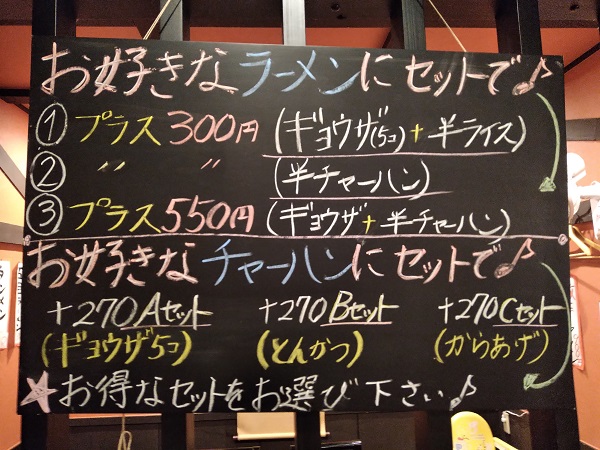 お好きなラーメンにセットで♪
① プラス300円 (ギョウザ(5コ)+半ライス)
② 〃 〃 (半チャーハン)
③ プラス550円 (ギョウザ+半チャーハン)
お好きなチャーハンにセットで♪
+270Aセット +270Bセット +270Cセット
(ギョウザ5コ) (とんかつ) (からあげ)
★お得なセットをお選び下さい♪